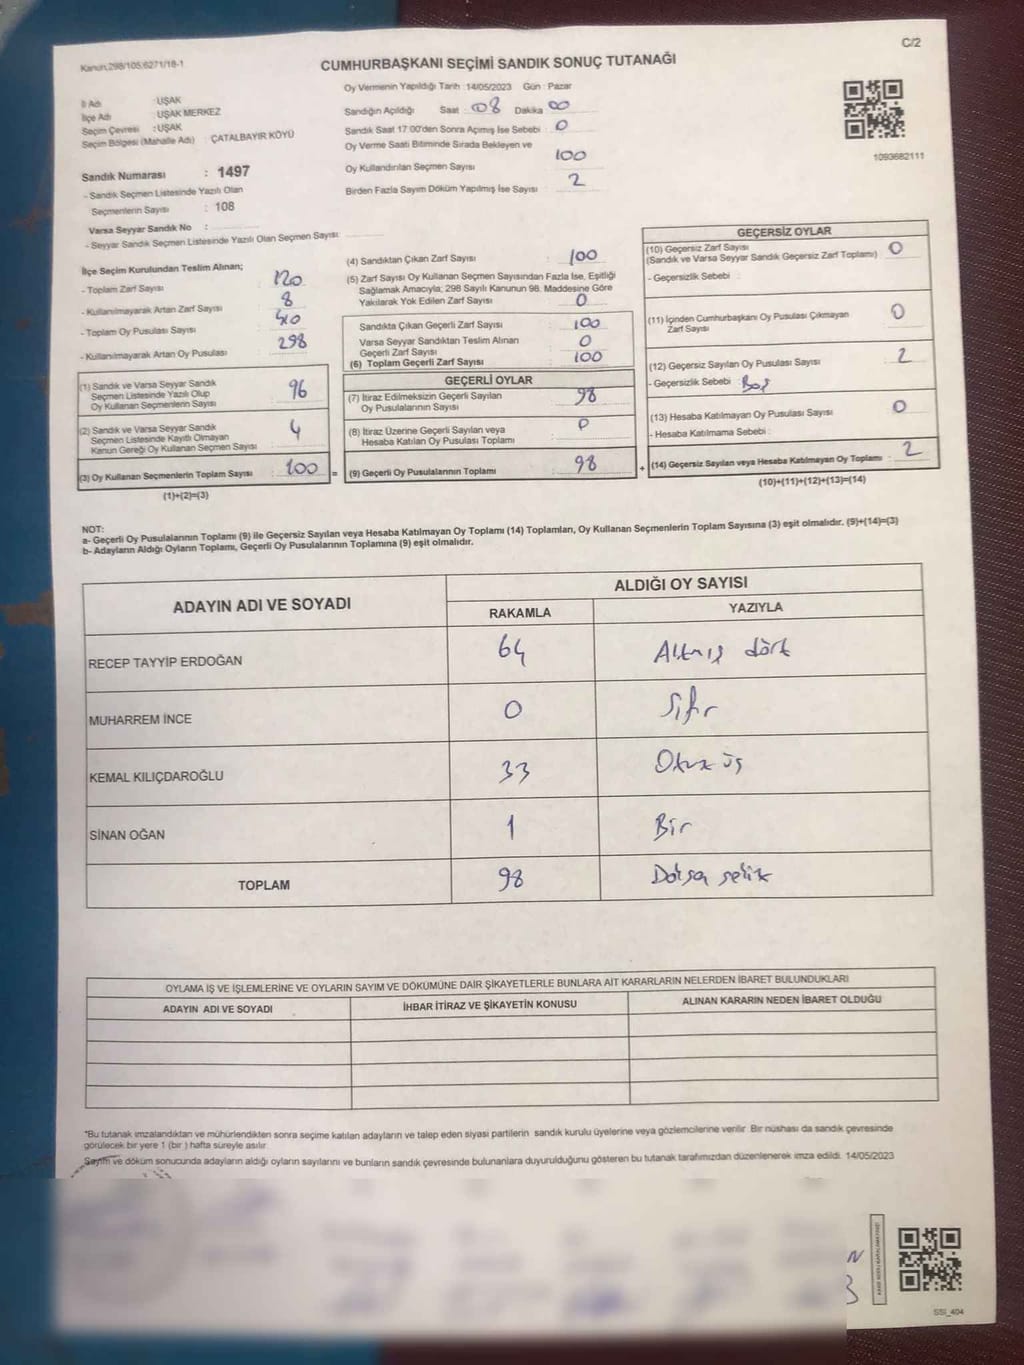 C/2
Kanun,298/105,6271/18-1
CUMHURBAŞKANI SEÇİMİ SANDIK SONUÇ TUTANAĞI
İl Adı : UŞAK
İlçe Adı : UŞAK MERKEZ
Seçim Çevresi : UŞAK
Seçim Bölgesi (Mahalle Adı) : ÇATALBAYIR KÖYÜ
Sandık Numarası : 1497
- Sandık Seçmen Listesinde Yazılı Olan
Seçmenlerin Sayısı : 108
Varsa Seyyar Sandık No :
- Seyyar Sandık Seçmen Listesinde Yazılı Olan Seçmen Sayısı:
Oy Vermenin Yapıldığı Tarih :14/05/2023 Gün : Pazar
Sandığın Açıldığı Saat : 08 Dakika 00
Sandık Saat 17.00'den Sonra Açımış İse Sebebi : 0
Oy Verme Saati Bitiminde Sırada Bekleyen ve
Oy Kullandırılan Seçmen Sayısı 100
Birden Fazla Sayım Döküm Yapılmış İse Sayısı : 2
1093682111
İlçe Seçim Kurulundan Teslim Alınan;
- Toplam Zarf Sayısı : 120
- Kullanılmayarak Artan Zarf Sayısı : 8
- Toplam Oy Pusulası Sayısı
- Kullanılmayarak Artan Oy Pusulası : 298
(1) Sandık ve Varsa Seyyar Sandık
Seçmen Listesinde Yazılı Olup
Oy Kullanan Seçmenlerin Sayısı : 96
(2) Sandık ve Varsa Seyyar Sandık
Seçmen Listesinde Kayıtlı Olmayan
Kanun Gereği Oy Kullanan Seçmen Sayısı : 4
(3) Oy Kullanan Seçmenlerin Toplam Sayısı : 100 =
(1)+(2)=(3)
(4) Sandıktan Çıkan Zarf Sayısı : 100
(5) Zarf Sayısı Oy Kullanan Seçmen Sayısından Fazla İse, Eşitliği
Sağlamak Amacıyla; 298 Sayılı Kanunun 98. Maddesine Göre
Yakılarak Yok Edilen Zarf Sayısı : 0
Sandıkta Çıkan Geçerli Zarf Sayısı : 100
Varsa Seyyar Sandıktan Teslim Alınan
Geçerli Zarf Sayısı : 0
(6) Toplam Geçerli Zarf Sayısı : 100
GEÇERLİ OYLAR
(7) İtiraz Edilmeksizin Geçerli Sayılan
Oy Pusulalarının Sayısı : 98
(8) İtiraz Üzerine Geçerli Sayılan veya
Hesaba Katılan Oy Pusulası Toplamı : 0
(9) Geçerli Oy Pusulalarının Toplamı : 98 +
GEÇERSİZ OYLAR
(10) Geçersiz Zarf Sayısı
(Sandık ve Varsa Seyyar Sandık Geçersiz Zarf Toplamı) : 0
- Geçersizlik Sebebi :
(11) İçinden Cumhurbaşkanı Oy Pusulası Çıkmayan
Zarf Sayısı : 0
(12) Geçersiz Sayılan Oy Pusulası Sayısı : 2
- Geçersizlik Sebebi : Boş
(13) Hesaba Katılmayan Oy Pusulası Sayısı : 0
- Hesaba Katılmama Sebebi :
(14) Geçersiz Sayılan veya Hesaba Katılmayan Oy Toplamı : 2
(10)+(11)+(12)+(13)=(14)
NOT:
a- Geçerli Oy Pusulalarının Toplamı (9) ile Geçersiz Sayılan veya Hesaba Katılmayan Oy Toplamı (14) Toplamları, Oy Kullanan Seçmenlerin Toplam Sayısına (3) eşit olmalıdır. (9)+(14)=(3)
b- Adayların Aldığı Oyların Toplamı, Geçerli Oy Pusulalarının Toplamına (9) eşit olmalıdır.
ADAYIN ADI VE SOYADI
ALDIĞI OY SAYISI
RAKAMLA YAZIYLA
RECEP TAYYİP ERDOĞAN 64 Altmış dört
MUHARREM İNCE 0 Sıfır
KEMAL KILIÇDAROĞLU 33 Otuz üç
SİNAN OĞAN 1 Bir
TOPLAM 98 Doksan sekiz
OYLAMA İŞ VE İŞLEMLERİNE VE OYLARIN SAYIM VE DÖKÜMÜNE DAİR ŞİKAYETLERLE BUNLARA AİT KARARLARIN NELERDEN İBARET BULUNDUKLARI
ADAYIN ADI VE SOYADI İHBAR İTİRAZ VE ŞİKAYETİN KONUSU ALINAN KARARIN NEDEN İBARET OLDUĞU
*Bu tutanak imzalandıktan ve mühürlendikten sonra seçime katılan adayların ve talep eden siyasi partilerin sandık kurulu üyelerine veya gözlemcilerine verilir. Bir nüshası da sandık çevresinde
görülecek bir yere 1 (bir ) hafta süreyle asılır.
Sayım ve döküm sonucunda adayların aldığı oyların sayılarını ve bunların sandık çevresinde bulunanlara duyurulduğunu gösteren bu tutanak tarafımızdan düzenlenerek imza edildi. 14/05/2023
SSI_404